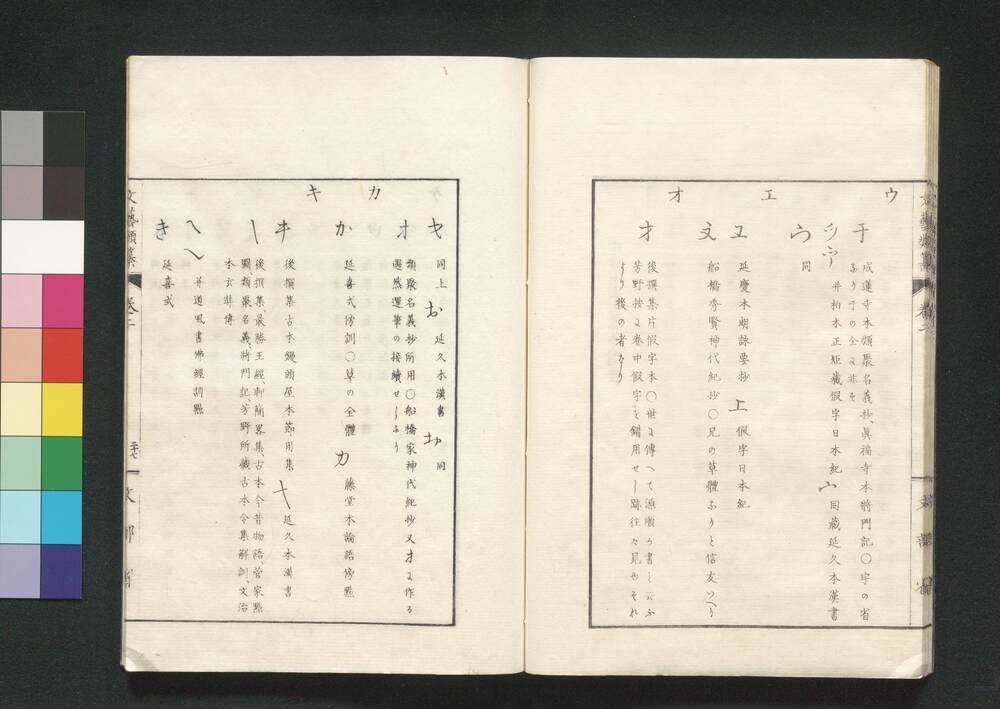 ウ
エ
オ
于 成蓮寺本類聚名義抄、眞福寺本將門記〇宇の省
ふり于の全に非そ
幷柏木正矩藏假字日本紀 宀 同藏延久本漢書
同
ヱ 延慶本朝詠要抄 上 假字日本紀
船橋秀賢神代紀抄〇兄の草體ふりと信友いへり
才 後撰集片假字本〇世に傳へて源順う書しと云ふ
芳野按に卷中假字を錯用せし跡往々見也それ
より後の者なり
カ
キ
同上 お 延久本漢書 同
オ 類聚名義抄所用〇船橋家神代紀抄又才に作る
愚然運筆の接續せしふり
か 延喜式傍訓〇草の全體 カ 藤堂本論語傍點
キ 後撰集古本饅頭屋本節用集 延久本漢書
後撰集、最勝王經、鄣簡畧集、古本今昔物語、菅家點
圖、類聚名義、將門記、芳野所藏古本令集解訓、文治
本玄弉傳
幷道風書佛經訓點
き 延喜式
文藝類纂 卷二
二七
文部省